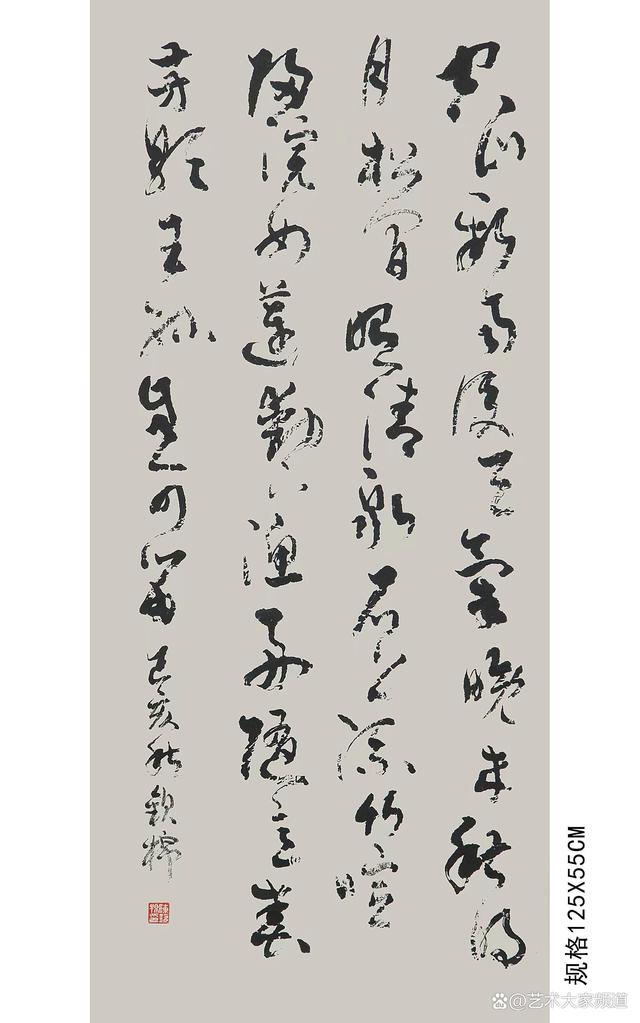 空山新雨後天氣晚来秋明
月松间照清泉石上流竹喧
歸浣女蓮動下漁舟随意春
芳歇王孫自可留
己亥秋
规格125X55CM
@艺术大家频道